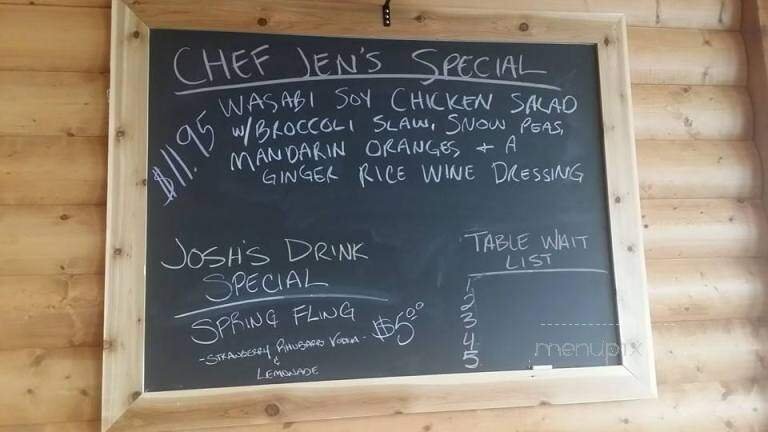 CHEF JEN'S SPECIAL
$11.95
WASABI SOY CHICKEN SALAD
W/BROCCOLI SLAW, SNOW PEAS,
MANDARIN ORANGES + A
GINGER RICE WINE DRESSING
JOSH'S DRINK
SPECIAL
SPRING FLING
$5.00
- STRAWBERRY RHUBARB VODKA -
&
LEMONADE
TABLE WAIT
LIST
1
2
3
4
5
menupix